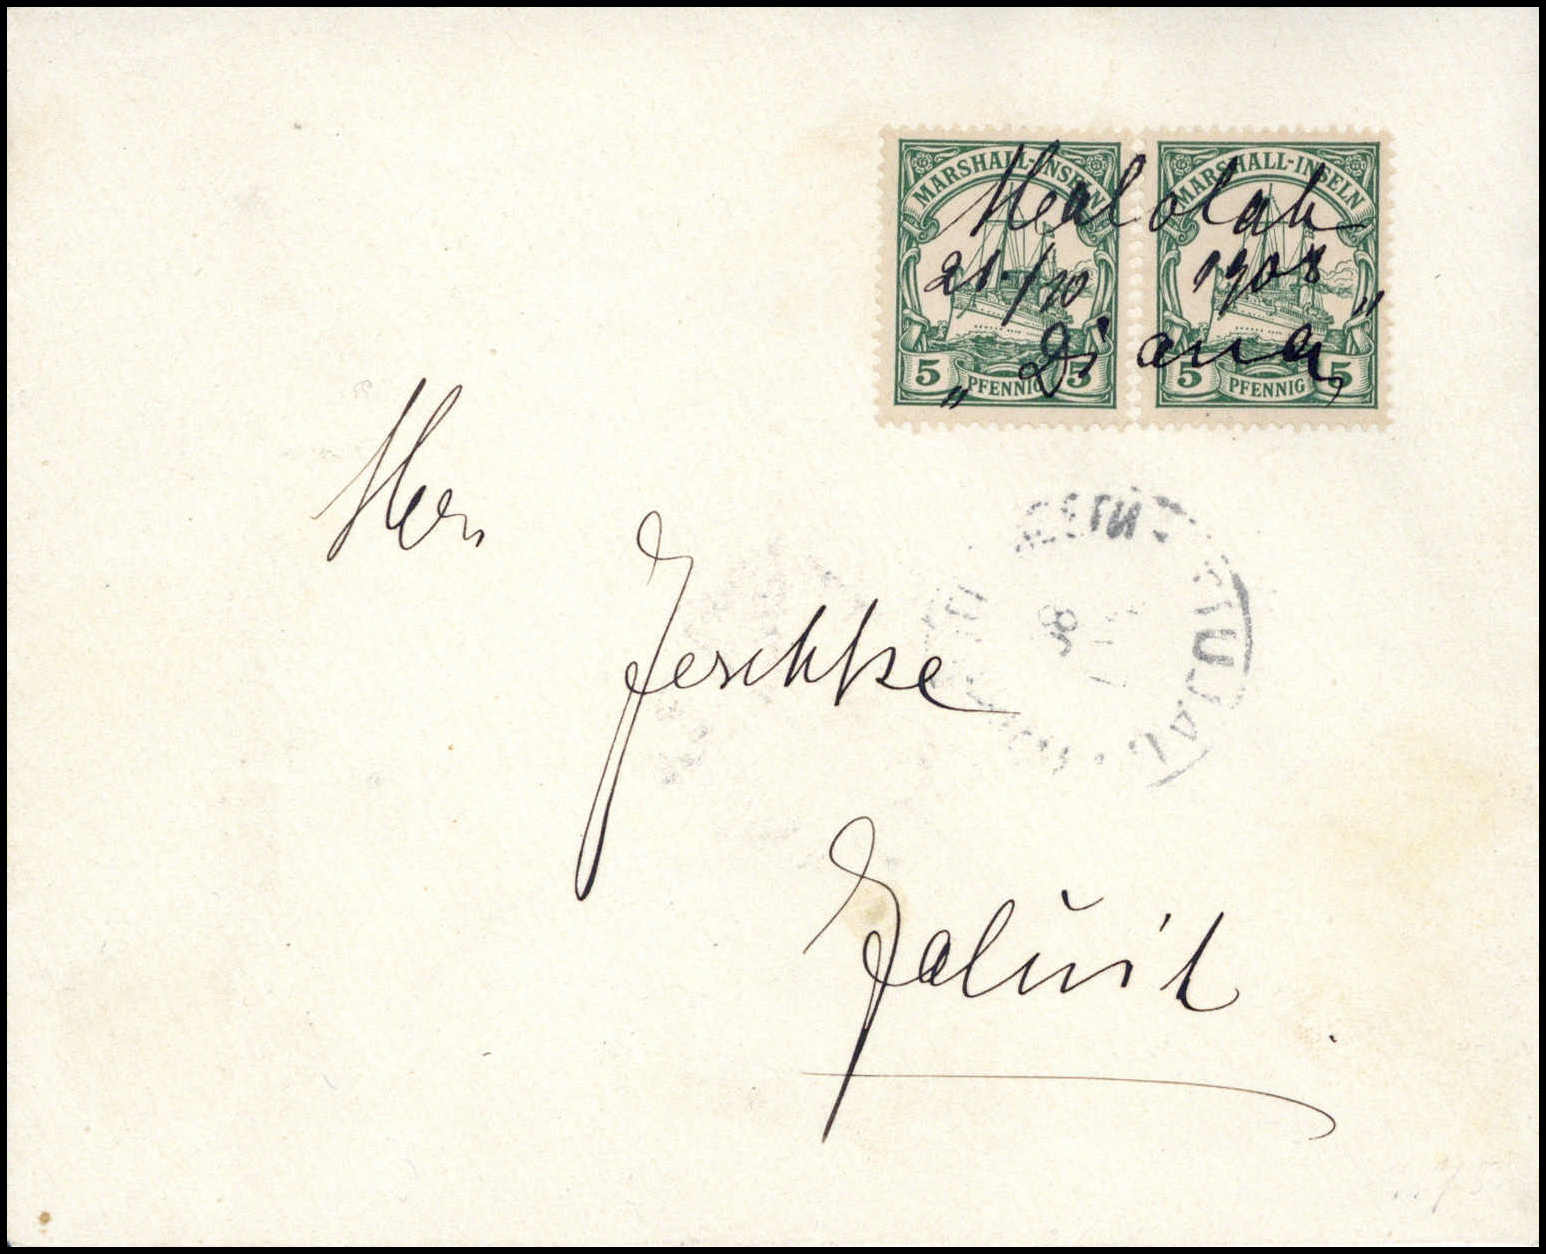 MARSHALL-INSELN MARSHALL-INSELN
Maloelab
21./10 1908
"Diana"
5 PFENNIG 5 5 PFENNIG 5
Herrn
Jeschke
Jaluit